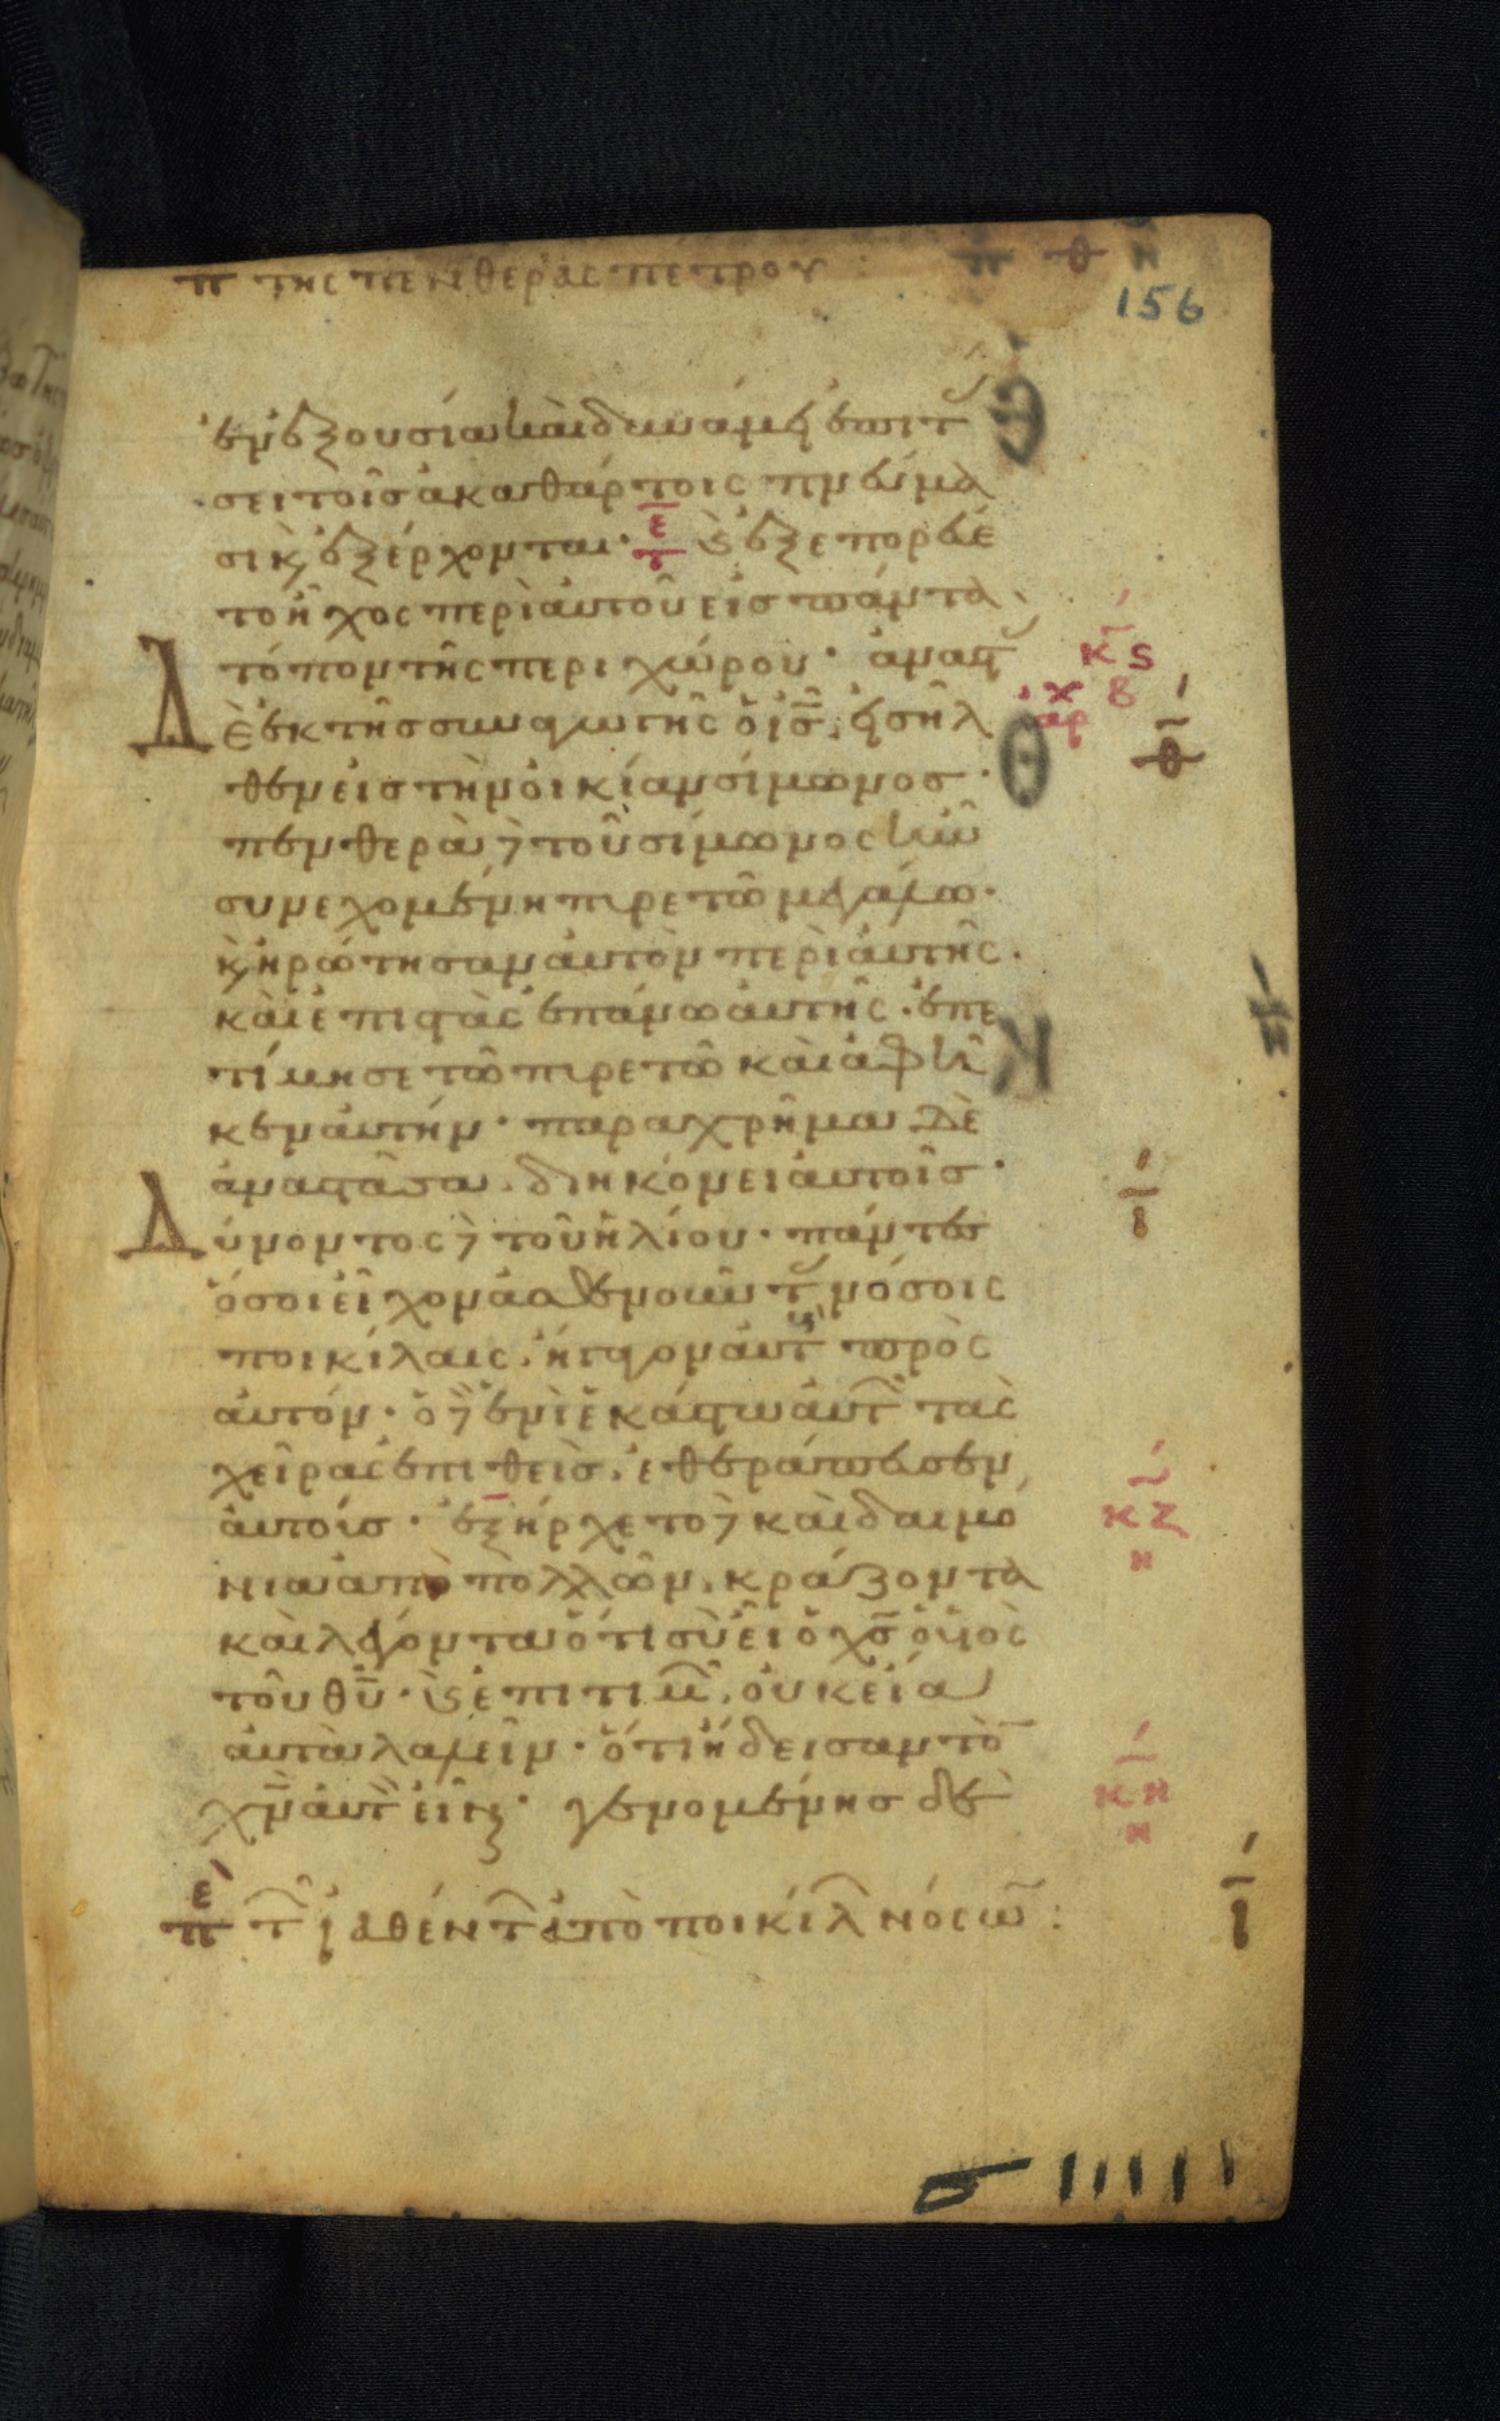 π της πενθερας πετρου : π θ η
156
ἐν ἐξουσία καὶ δυνάμει ἐπιτ
σει τοῖς ἀκαθάρτοις πνεύμα
σι κ ἐξέρχονται· ε τ κ ἐξεπορεύε
το ἦχος περὶ αὐτοῦ εἰς πάντα
τόπον τῆς περιχώρου· ἀναστ
Δὲ ἐκ τῆς συναγωγῆς ὁ ις, εἰσῆλ
θεν εἰς τὴν οἰκίαν σίμωνος·
πενθερὰ δὲ τοῦ σίμωνος ἦν
συνεχομένη πυρετῶ μεγάλω·
κ ἠρώτησαν αὐτὸν περὶ αὐτῆς·
καὶ ἐπιστὰς ἐπάνω αὐτῆς· ἐπε
τίμησε τῶ πυρετῶ καὶ ἀφῆ
κεν αὐτήν· παραχρῆμα δὲ
ἀναστᾶσα διηκόνει αὐτοῖς·
Δύνοντος δὲ τοῦ ἡλίου· πάντες
ὅσοι εἶχον ἀσθενοῦντ νόσοις
ποικίλαις, ἤγαγον αὐτ πρὸς
αὐτόν· ὁ δὲ ἑνὶ ἑκάστω αὐτ τὰς
χεῖρας ἐπιθεὶς, ἐθεράπευσεν
αὐτούς· ἐξήρχετο δὲ καὶ δαιμό
νια ἀπὸ πολλῶν, κράζοντα
καὶ λέγοντα ὅτι σὺ εἶ ὁ χς ὁ υἱὸς
τοῦ θυ· κ ἐπιτιμ, οὐκ εἴα
αὐτὰ λαλεῖν· ὅτι ἤδεισαν τὸ
χν αὐτ εἶναι· γενομένης δὲ
ε π τ ἰαθέντ ἀπὸ ποικίλ νόσω :
κς
αρχ
η
θ
ι
κζ
η
κη
η
ι